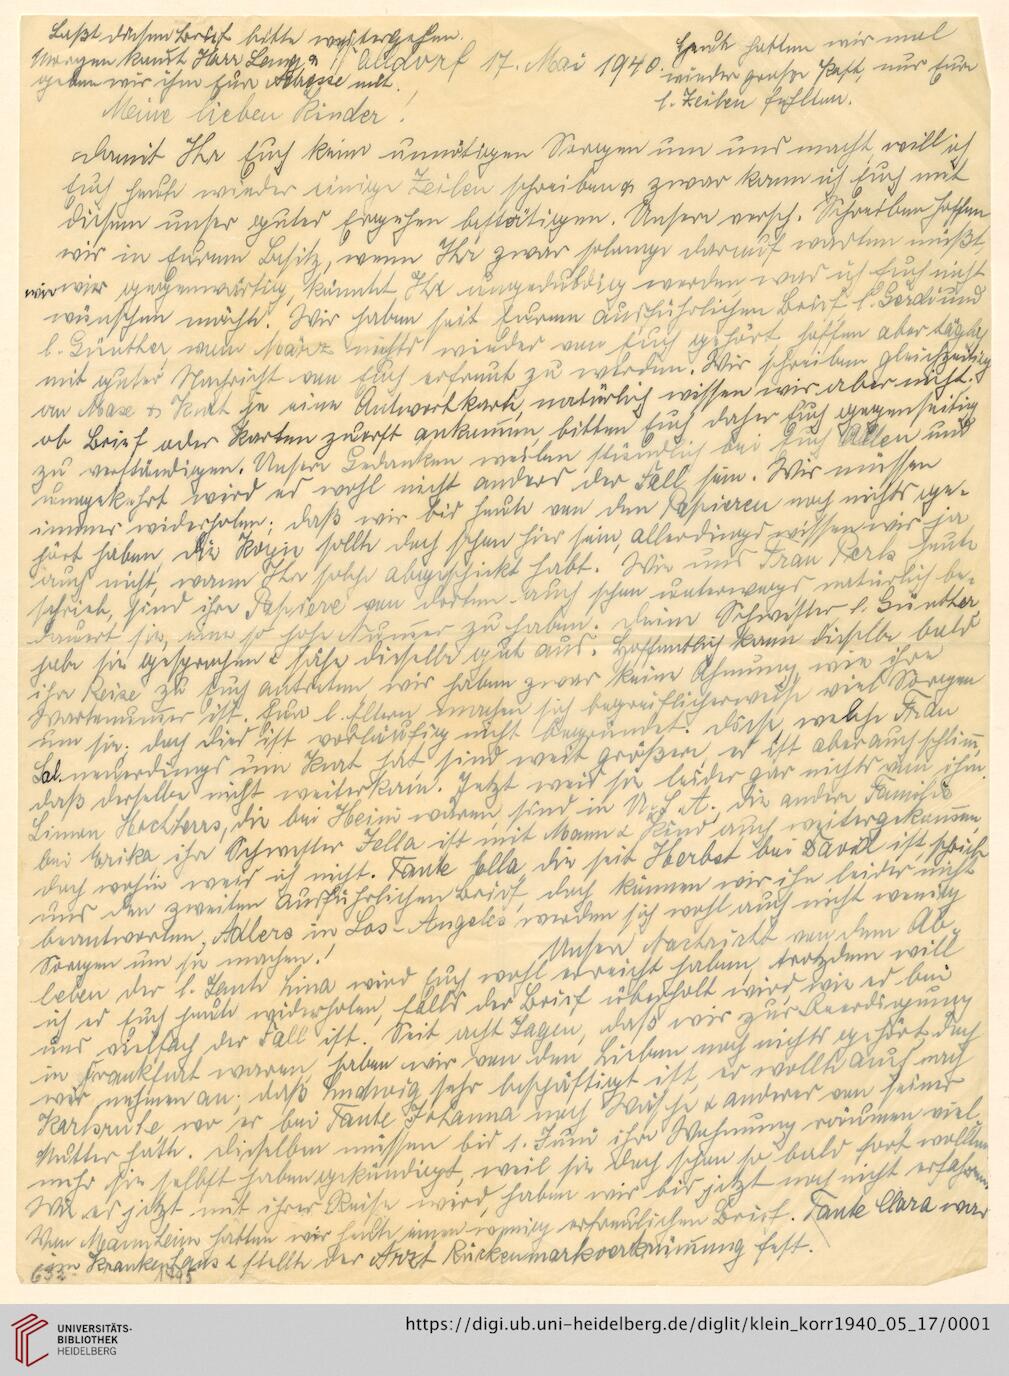 Laßt diesen Brief bitte weitergehen.
Morgen kommt Herr Lang &
geben wir ihm Eure Adresse mit.
Walldorf 17. Mai 1940.
Heute hatten wir mal
wieder große Post, nur Eure
l. Zeilen fehlten.
Meine lieben Kinder!
Damit Ihr Euch keine unnötigen Sorgen um uns macht will ich
Euch heute wieder einige Zeilen schreiben & zwar kann ich Euch mit
diesem unser gutes Ergehen bestätigen. Unsere versch. Schreiben hoffen
wir in Eurem Besitz, wenn Ihr zwar solange darauf warten müßt,
wie wir gegenwärtig, könntet Ihr ungeduldig werden was ich Euch nicht
wünschen möchte. Wir haben seit Eurem ausführlichen Brief l. Gerdi und
l. Günther vom März nichts wieder von Euch gehört hoffen aber täglich
mit guter Nachricht von Euch erfreut zu werden. Wir schreiben gleichzeitig
an Max & Kurt je eine Antwortkarte, natürlich wissen wir aber nicht,
ob Brief oder Karten zuerst ankommen, bitten Euch daher Euch gegenseitig
zu verständigen. Unsere Gedanken weilen stündlich bei Euch Allen und
umgekehrt wird es wohl nicht anders der Fall sein. Wir müssen
immer widerholen; daß wir bis heute von den Papieren noch nichts ge-
hört haben, die Kopie sollte doch schon hier sein, allerdings wissen wir ja
auch nicht, wann Ihr solche abgeschickt habt. Wie uns Frau Perls heute
schrieb, sind ihre Papiere von dorten auch schon unterwegs natürlich be-
dauert sie, eine so hohe Nummer zu haben. Deine Schwester l. Günther,
habe sie gesprochen & sähe dieselbe gut aus. Hoffentlich kann dieselbe bald
ihre Reise zu Euch antreten wir haben zwar keine Ahnung wie ihre
Wartenummer ist. Eure l. Eltern machen sich begreiflicherweise viel Sorgen
um sie; doch dies ist vorläufig nicht begründet. Diese, welche Frau
Sal. neuerdings um Kurt hat sind weit größer, es ist aber auch schlimm,
daß derselbe nicht weiterkam. Jetzt weis sie leider gar nichts von ihm.
Hochherrs, die bei Heim waren, sind in U.S.A., die andere Familie
bei Erika, ihr Schwester Jella ist mit Mann & Kind auch weitergekommen,
doch wohin weis ich nicht. Tante Jella, die seit Herbst bei David ist, schickte
uns den zweiten ausführlichen Brief, doch können wir ihn leider nicht
beantworten. Adlers in Los-Angelés werden sich wohl auch nicht wenig
Sorgen um sie machen! Unsere Nachricht von dem Ab-
leben der l. Tante Lina wird Euch wohl erreicht haben, trotzdem will
ich es Euch heute widerholen, falls der Brief überholt wird, wie es bei
uns vielfach der Fall ist. Seit acht Tagen, daß wir zur Beerdigung
in Frankfurt waren, haben wir von den Lieben noch nichts gehört, doch
wir nehmen an; daß Ludwig sehr beschäftigt ist, er wollte auch nach
Karlsruhe wo er bei Tante Johanna noch Wäsche & anderes von seiner
Mutter hätte. Dieselben müssen bis 1. Juni ihre Wohnung räumen, viel-
mehr sie selbst haben gekündigt, weil sie doch schon so bald fort wollten.
Wie es jetzt mit ihrer Reise wird, haben wir bis jetzt noch nicht erfahren.
Von Mannheim hatten wir heute einen wenig erfreulichen Brief. Tante Clara war
im Krankenhaus & stellte der Arzt Rückenmarkverkrümmung fest.
UNIVERSITÄTS-
BIBLIOTHEK
HEIDELBERG
https://digi.ub.uni-heidelberg.de/diglit/klein_korr1940_05_17/0001